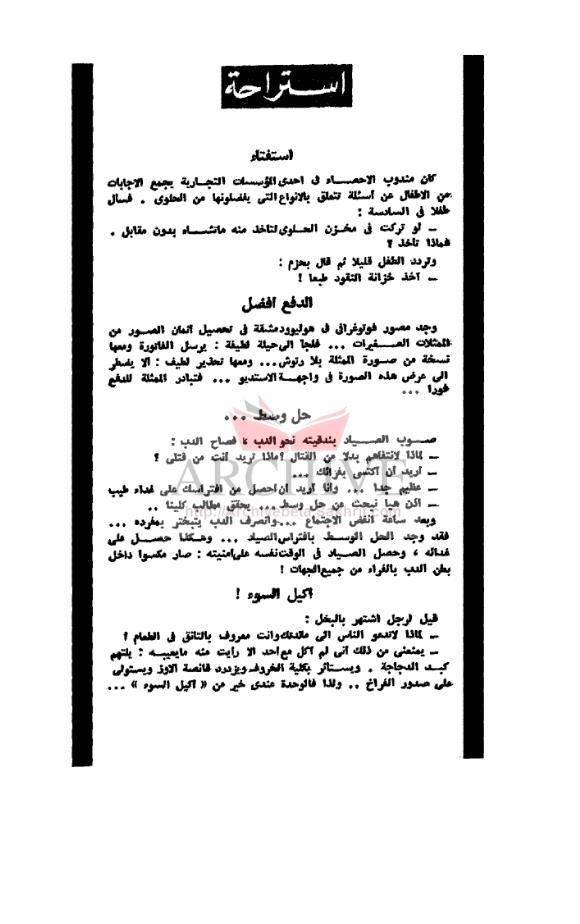 استراحة
استفتاء
كان مندوب الاحصاء فى احدى المؤسسات التجارية يجمع الاجابات
من الاطفال عن أسئلة تتعلق بالانواع التى يفضلونها من الحلوى . فسال
طفلا فى السادسة :
ــ لو تركت فى مخزن الحلوى لتاخذ منه ماتشاء بدون مقابل .
فماذا تأخذ ؟
وتردد الطفل قليلا ثم قال بحزم :
ــ آخذ خزانة النقود طبعا !
الدفع أفضل
وجد مصور فوتوغرافى فى هوليوود مشقة فى تحصيل أثمان الصور من
الممثلات الصغيرات ... فلجأ الى حيلة لطيفة : يرسل الفاتورة ومعها
نسخة من صورة الممثلة بلا رتوش... ومعها تحذير لطيف : ألا يضطر
الى عرض هذه الصورة فى واجهة الاستديو ... فتبادر الممثلة للدفع
فورا ...
حل وسط ...
صوب الصياد بندقيته نحو الدب ، فصاح الدب :
ــ لماذا لانتفاهم بدلا من القتال أماذا تريد أنت من قتلى ؟
ــ أريد أن أكتسى بفرائك ...
ــ عظيم جدا ... وأنا أريد أن أحصل من افتراسك على غداء طيب
ــ اذن هيا نبحث عن حل وسط ... يحقق مطالب كلينا ..
وبعد ساعة انفض الاجتماع ... وانصرف الدب يتبختر بمفرده ...
فقد وجد الحل الوسط بافتراس الصياد ... وهكذا حصل على
غدائه ، وحصل الصياد فى الوقت نفسه على أمنيته : صار مكسوا داخل
بطن الدب بالفراء من جميع الجهات !
أكيل السوء !
قيل لرجل اشتهر بالبخل :
ــ لماذا لاتدعو الناس الى مائدتك وانت معروف بالتانق فى الطعام ؟
ــ يمنعنى من ذلك أنى لم آكل مع أحد الا رايت منه مايعيبه : يلتهم
كبد الدجاجة . ويستأثر بكلية الخروف ويزدرد قانصة الاوز ويستولى
على صدور الفراخ .. ولذا فالوحدة عندى خير من « أكيل السوء » ...
ARCHIVE
http://archivebeta.sakhrit.com